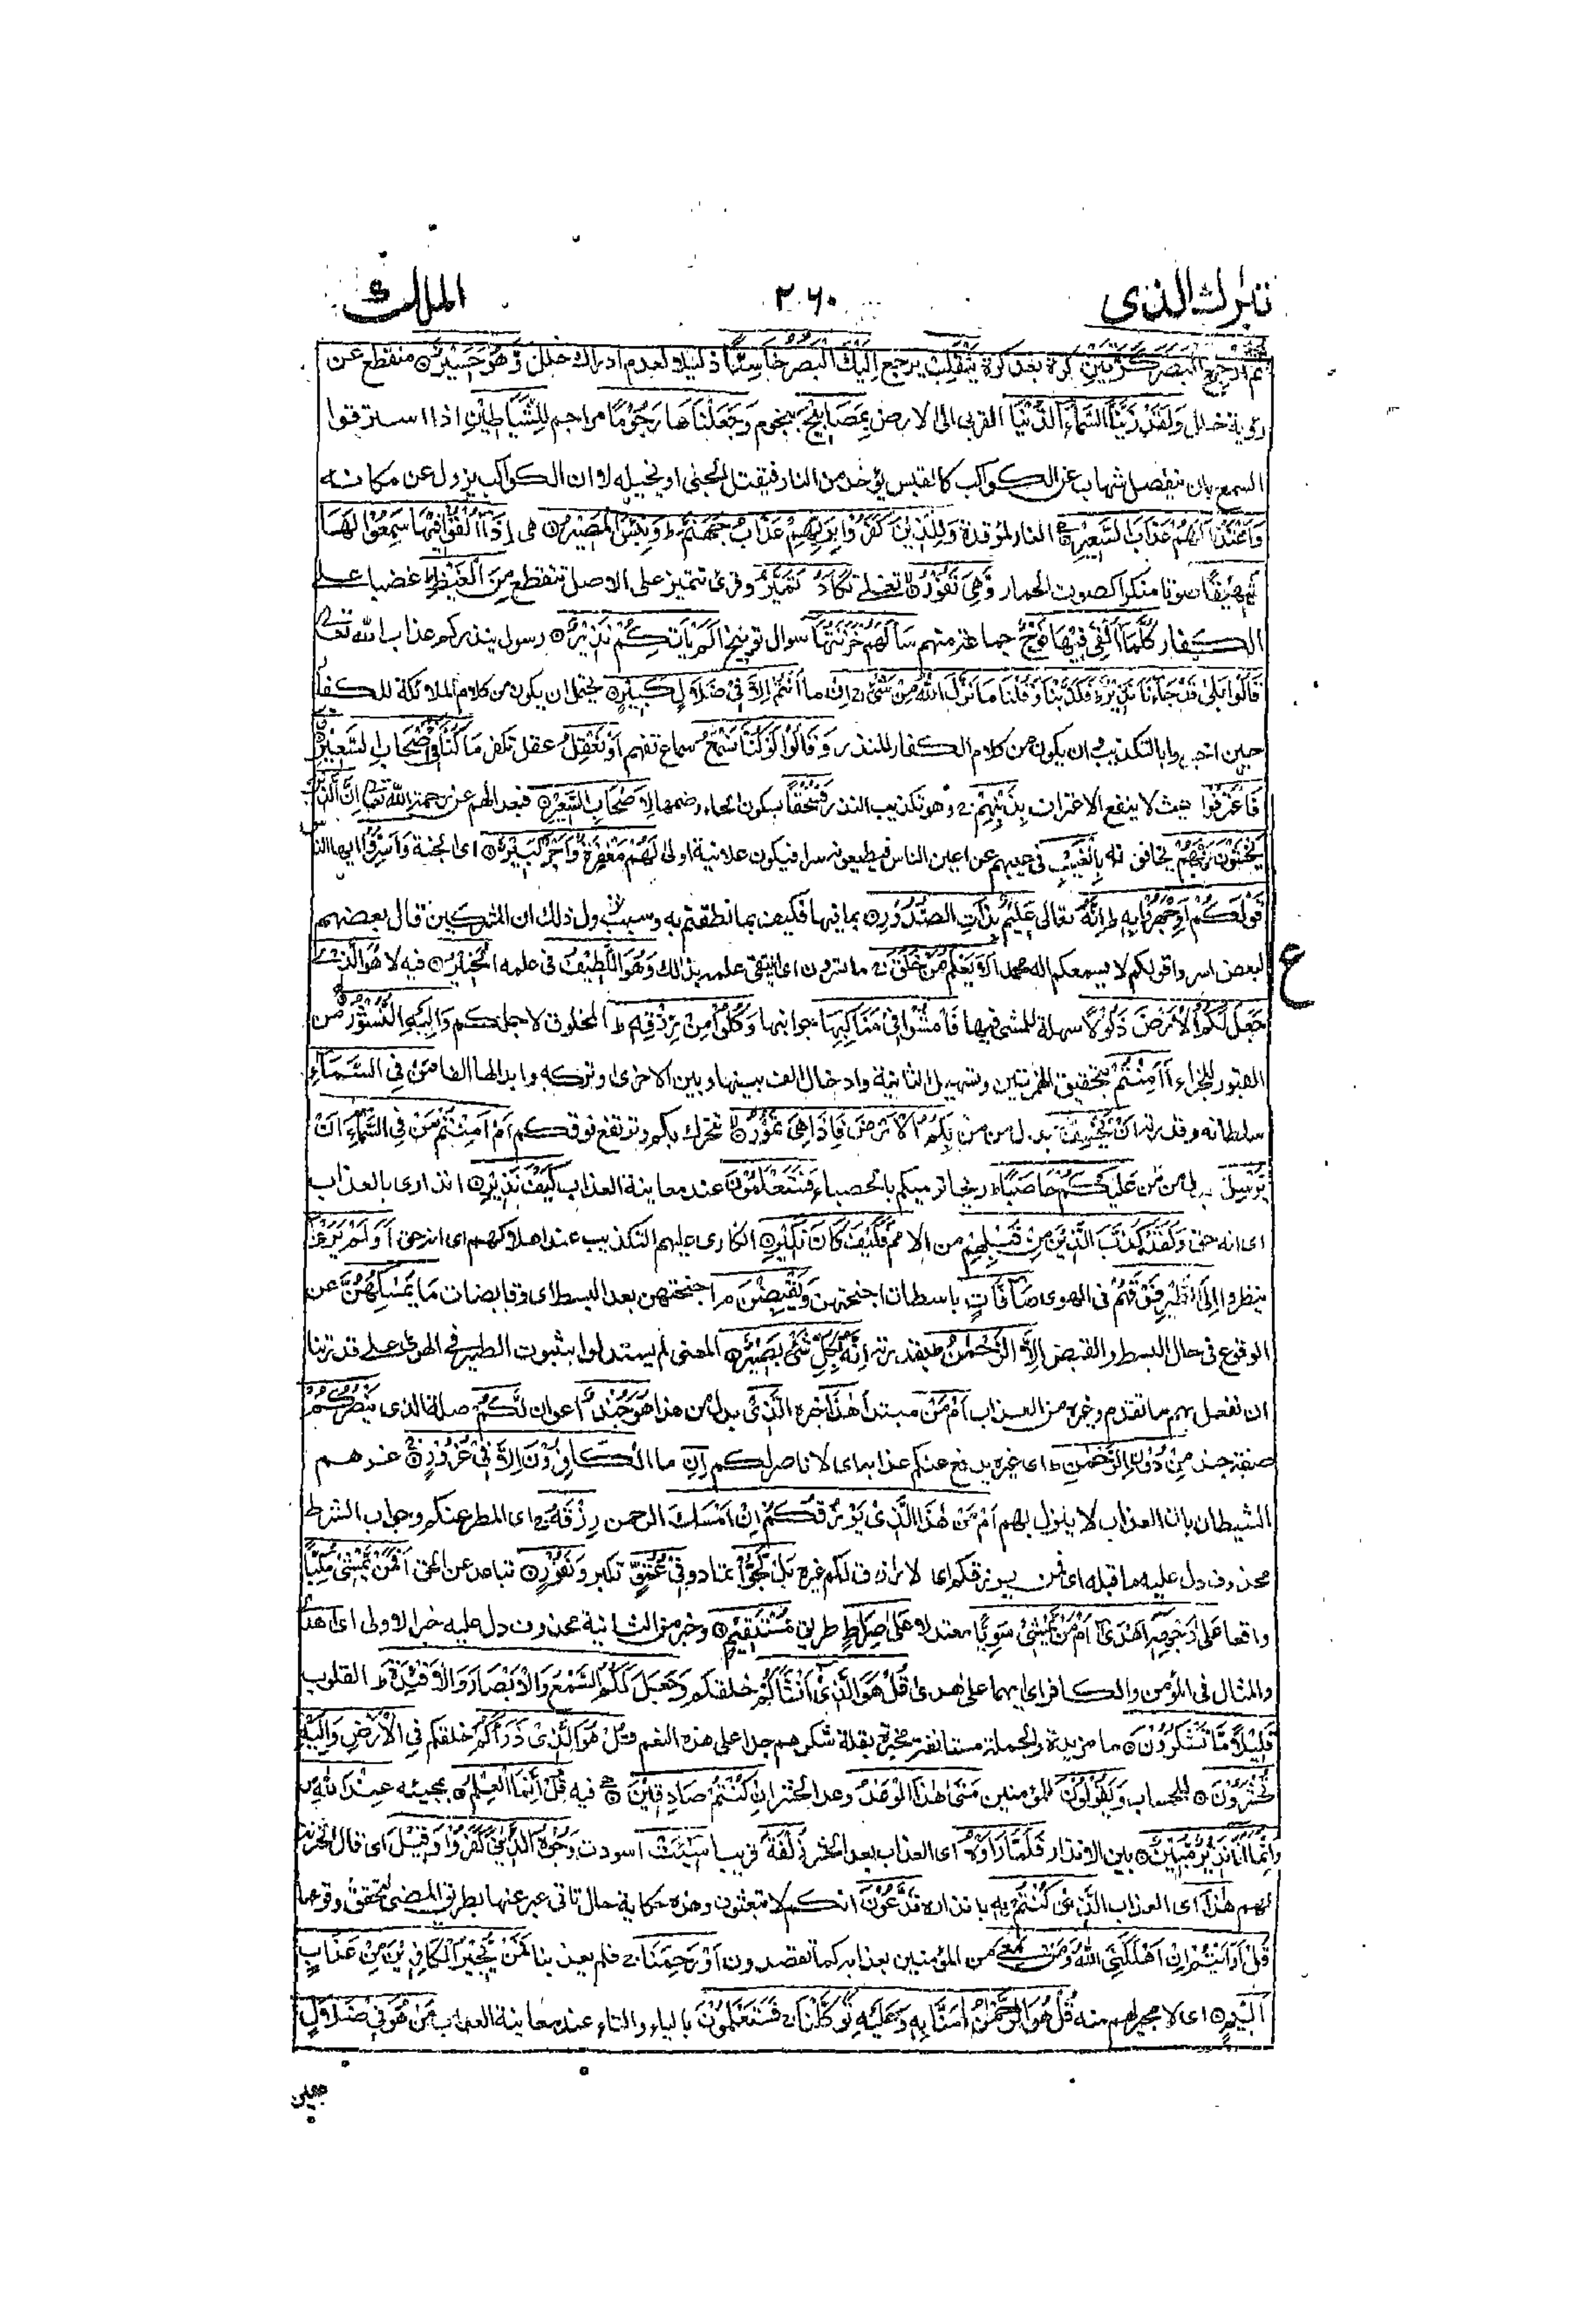 تبٰرك الذی ٢٦٠ الملك
ثُمَّ ارْجِعِ الْبَصَرَ كَرَّتَيْنِ كرة بعد كرة يَنْقَلِبْ يرجع اِلَيْكَ الْبَصَرُ خَاسِئًا ذليلا لعدم ادراك خلل وَّهُوَ حَسِيْرٌ منقطع عن
رؤية خلل وَلَقَدْ زَيَّنَّا السَّمَآءَ الدُّنْيَا القربى الى الارض بِمَصَابِيْحَ بنجوم وَجَعَلْنَاهَا رُجُوْمًا مراجم لِّلشَّيَاطِيْنِ اذا استرقوا
السمع بان ينفصل شهاب عن الكواكب كالقبس يؤخذ من النار فيقتل الجنى او يخبله لا ان الكواكب يزول عن مكانه
وَاَعْتَدْنَا لَهُمْ عَذَابَ السَّعِيْرِ النار الموقدة وَلِلَّذِيْنَ كَفَرُوْا بِرَبِّهِمْ عَذَابُ جَهَنَّمَ وَبِئْسَ الْمَصِيْرُ هى اِذَآ اُلْقُوْا فِيْهَا سَمِعُوْا لَهَا
شَهِيْقًا صوتا منكرا كصوت الحمار وَّهِيَ تَفُوْرُ تغلى تَكَادُ تَمَيَّزُ وقرئ تتميز على الاصل تنقطع مِنَ الْغَيْظِ غضبا على
الكفار كُلَّمَآ اُلْقِيَ فِيْهَا فَوْجٌ جماعة منهم سَاَلَهُمْ خَزَنَتُهَآ سوال توبيخ اَلَمْ يَاْتِكُمْ نَذِيْرٌ رسول ينذركم عذاب الله تعالى
قَالُوْا بَلٰى قَدْ جَآءَنَا نَذِيْرٌ فَكَذَّبْنَا وَقُلْنَا مَا نَزَّلَ اللّٰهُ مِنْ شَيْءٍ اِنْ ما اَنْتُمْ اِلَّا فِيْ ضَلَالٍ كَبِيْرٍ يحتمل ان يكون من كلام الملائكة للكفار
حين اخبروا بالتكذيب وان يكون من كلام الكفار للنذر وَقَالُوْا لَوْ كُنَّا نَسْمَعُ سماع تفهم اَوْ نَعْقِلُ عقل تفكر مَا كُنَّا فِيْٓ اَصْحَابِ السَّعِيْرِ
فَاعْتَرَفُوْا حيث لا ينفع الاعتراف بِذَنْبِهِمْ وهو تكذيب النذر فَسُحْقًا بسكون الحاء وضمها لِاَصْحَابِ السَّعِيْرِ فبعدا لهم عن رحمة الله تعالى اِنَّ الَّذِيْنَ
يَخْشَوْنَ رَبَّهُمْ يخافونه بِالْغَيْبِ فى غيبهم عن اعين الناس فيطيعونه سرا فيكون علانية اولى لَهُمْ مَغْفِرَةٌ وَّاَجْرٌ كَبِيْرٌ اى الجنة وَاَسِرُّوْا ايها الناس
قَوْلَكُمْ اَوِ اجْهَرُوْا بِهٖ اِنَّهٗ تعالى عَلِيْمٌ بِذَاتِ الصُّدُوْرِ بما فيها فكيف بما نطقتم به وسبب نزول ذلك ان المشركين قال بعضهم
لبعض اسروا قولكم لا يسمعكم اله محمد اَلَا يَعْلَمُ مَنْ خَلَقَ ما تسرون اى اينتفى علمه بذلك وَهُوَ اللَّطِيْفُ فى علمه الْخَبِيْرُ فيه لا هُوَ الَّذِيْ
جَعَلَ لَكُمُ الْاَرْضَ ذَلُوْلًا سهلة للمشى فيها فَامْشُوْا فِيْ مَنَاكِبِهَا جوانبها وَكُلُوْا مِنْ رِّزْقِهٖ المخلوق لاجلكم وَاِلَيْهِ النُّشُوْرُ من
القبور للجزاء ءَاَمِنْتُمْ بتحقيق الهمزتين وتسهيل الثانية وادخال الف بينها وبين الاخرى وتركه وابدالها الفا مَّنْ فِى السَّمَآءِ
سلطانه وقدرته اَنْ يَّخْسِفَ بدل من من بِكُمُ الْاَرْضَ فَاِذَا هِيَ تَمُوْرُ تتحرك بكم وترتفع فوقكم اَمْ اَمِنْتُمْ مَّنْ فِى السَّمَآءِ اَنْ
يُّرْسِلَ بدل من من عَلَيْكُمْ حَاصِبًا ريحا ترميكم بالحصباء فَسَتَعْلَمُوْنَ عند معاينة العذاب كَيْفَ نَذِيْرِ انذارى بالعذاب
اى انه حق وَلَقَدْ كَذَّبَ الَّذِيْنَ مِنْ قَبْلِهِمْ من الامم فَكَيْفَ كَانَ نَكِيْرِ انكارى عليهم التكذيب عند اهلاكهم اى انه حق اَوَلَمْ يَرَوْا
ينظروا اِلَى الطَّيْرِ فَوْقَهُمْ فى الهوى صٰٓفّٰتٍ باسطات اجنحتهن وَّيَقْبِضْنَ اجنحتهن بعد البسط اى وقابضات مَا يُمْسِكُهُنَّ عن
الوقوع فى حال البسط والقبض اِلَّا الرَّحْمٰنُ بقدرته اِنَّهٗ بِكُلِّ شَيْءٍ بَصِيْرٌ المعنى لم يستدلوا بثبوت الطير فى الهوى على قدرتنا
ان نفعل بهم ما تقدم وغيره من العذاب اَمَّنْ مبتدا هٰذَا خبره الَّذِيْ بدل من هذا هُوَ جُنْدٌ اعوان لَّكُمْ صلة الذى يَنْصُرُكُمْ
صفة جند مِّنْ دُوْنِ الرَّحْمٰنِ اى غيره يدفع عنكم عذابه اى لا ناصر لكم اِنِ ما الْكَافِرُوْنَ اِلَّا فِيْ غُرُوْرٍ غرهم
الشيطان بان العذاب لا ينزل بهم اَمَّنْ هٰذَا الَّذِيْ يَرْزُقُكُمْ اِنْ اَمْسَكَ الرحمن رِزْقَهٗ اى المطر عنكم وجواب الشرط
محذوف دل عليه ما قبله اى فمن يرزقكم اى لا رازق لكم غيره بَلْ لَّجُّوْا تمادوا فِيْ عُتُوٍّ تكبر وَّنُفُوْرٍ تباعد عن الحق اَفَمَنْ يَّمْشِيْ مُكِبًّا
واقعا عَلٰى وَجْهِهٖٓ اَهْدٰىٓ اَمَّنْ يَّمْشِيْ سَوِيًّا معتدلا عَلٰى صِرَاطٍ طريق مُّسْتَقِيْمٍ وخبر من الثانية محذوف دل عليه خبر الاولى اى اهدى
والمثال فى المؤمن والكافر اى ايهما على هدى قُلْ هُوَ الَّذِيْٓ اَنْشَاَكُمْ خلقكم وَجَعَلَ لَكُمُ السَّمْعَ وَالْاَبْصَارَ وَالْاَفْئِدَةَ القلوب
قَلِيْلًا مَّا تَشْكُرُوْنَ ما مزيدة والجملة مستانفة مخبرة بقلة شكرهم جدا على هذه النعم قُلْ هُوَ الَّذِيْ ذَرَاَكُمْ خلقكم فِى الْاَرْضِ وَاِلَيْهِ
تُحْشَرُوْنَ للحساب وَيَقُوْلُوْنَ للمؤمنين مَتٰى هٰذَا الْوَعْدُ وعد الحشر اِنْ كُنْتُمْ صَادِقِيْنَ فيه قُلْ اِنَّمَا الْعِلْمُ بمجيئه عِنْدَ اللّٰهِ
وَاِنَّمَآ اَنَا نَذِيْرٌ مُّبِيْنٌ بين الانذار فَلَمَّا رَاَوْهُ اى العذاب بعد الحشر زُلْفَةً قريبا سِيْٓئَتْ اسودت وُجُوْهُ الَّذِيْنَ كَفَرُوْا وَقِيْلَ اى قال الخزنة
لهم هٰذَا اى العذاب الَّذِيْ كُنْتُمْ بِهٖ بانذاره تَدَّعُوْنَ انكم لا تبعثون وهذه حكاية حال تاتى عبر عنها بطريق المضى لتحقق وقوعها
قُلْ اَرَاَيْتُمْ اِنْ اَهْلَكَنِيَ اللّٰهُ وَمَنْ مَّعِيَ من المؤمنين بعذابه كما تقصدون اَوْ رَحِمَنَا فلم يعذبنا فَمَنْ يُّجِيْرُ الْكَافِرِيْنَ مِنْ عَذَابٍ
اَلِيْمٍ اى لا مجير لهم منه قُلْ هُوَ الرَّحْمٰنُ اٰمَنَّا بِهٖ وَعَلَيْهِ تَوَكَّلْنَا فَسَتَعْلَمُوْنَ بالياء والتاء عند معاينة العذاب مَنْ هُوَ فِيْ ضَلَالٍ
ع